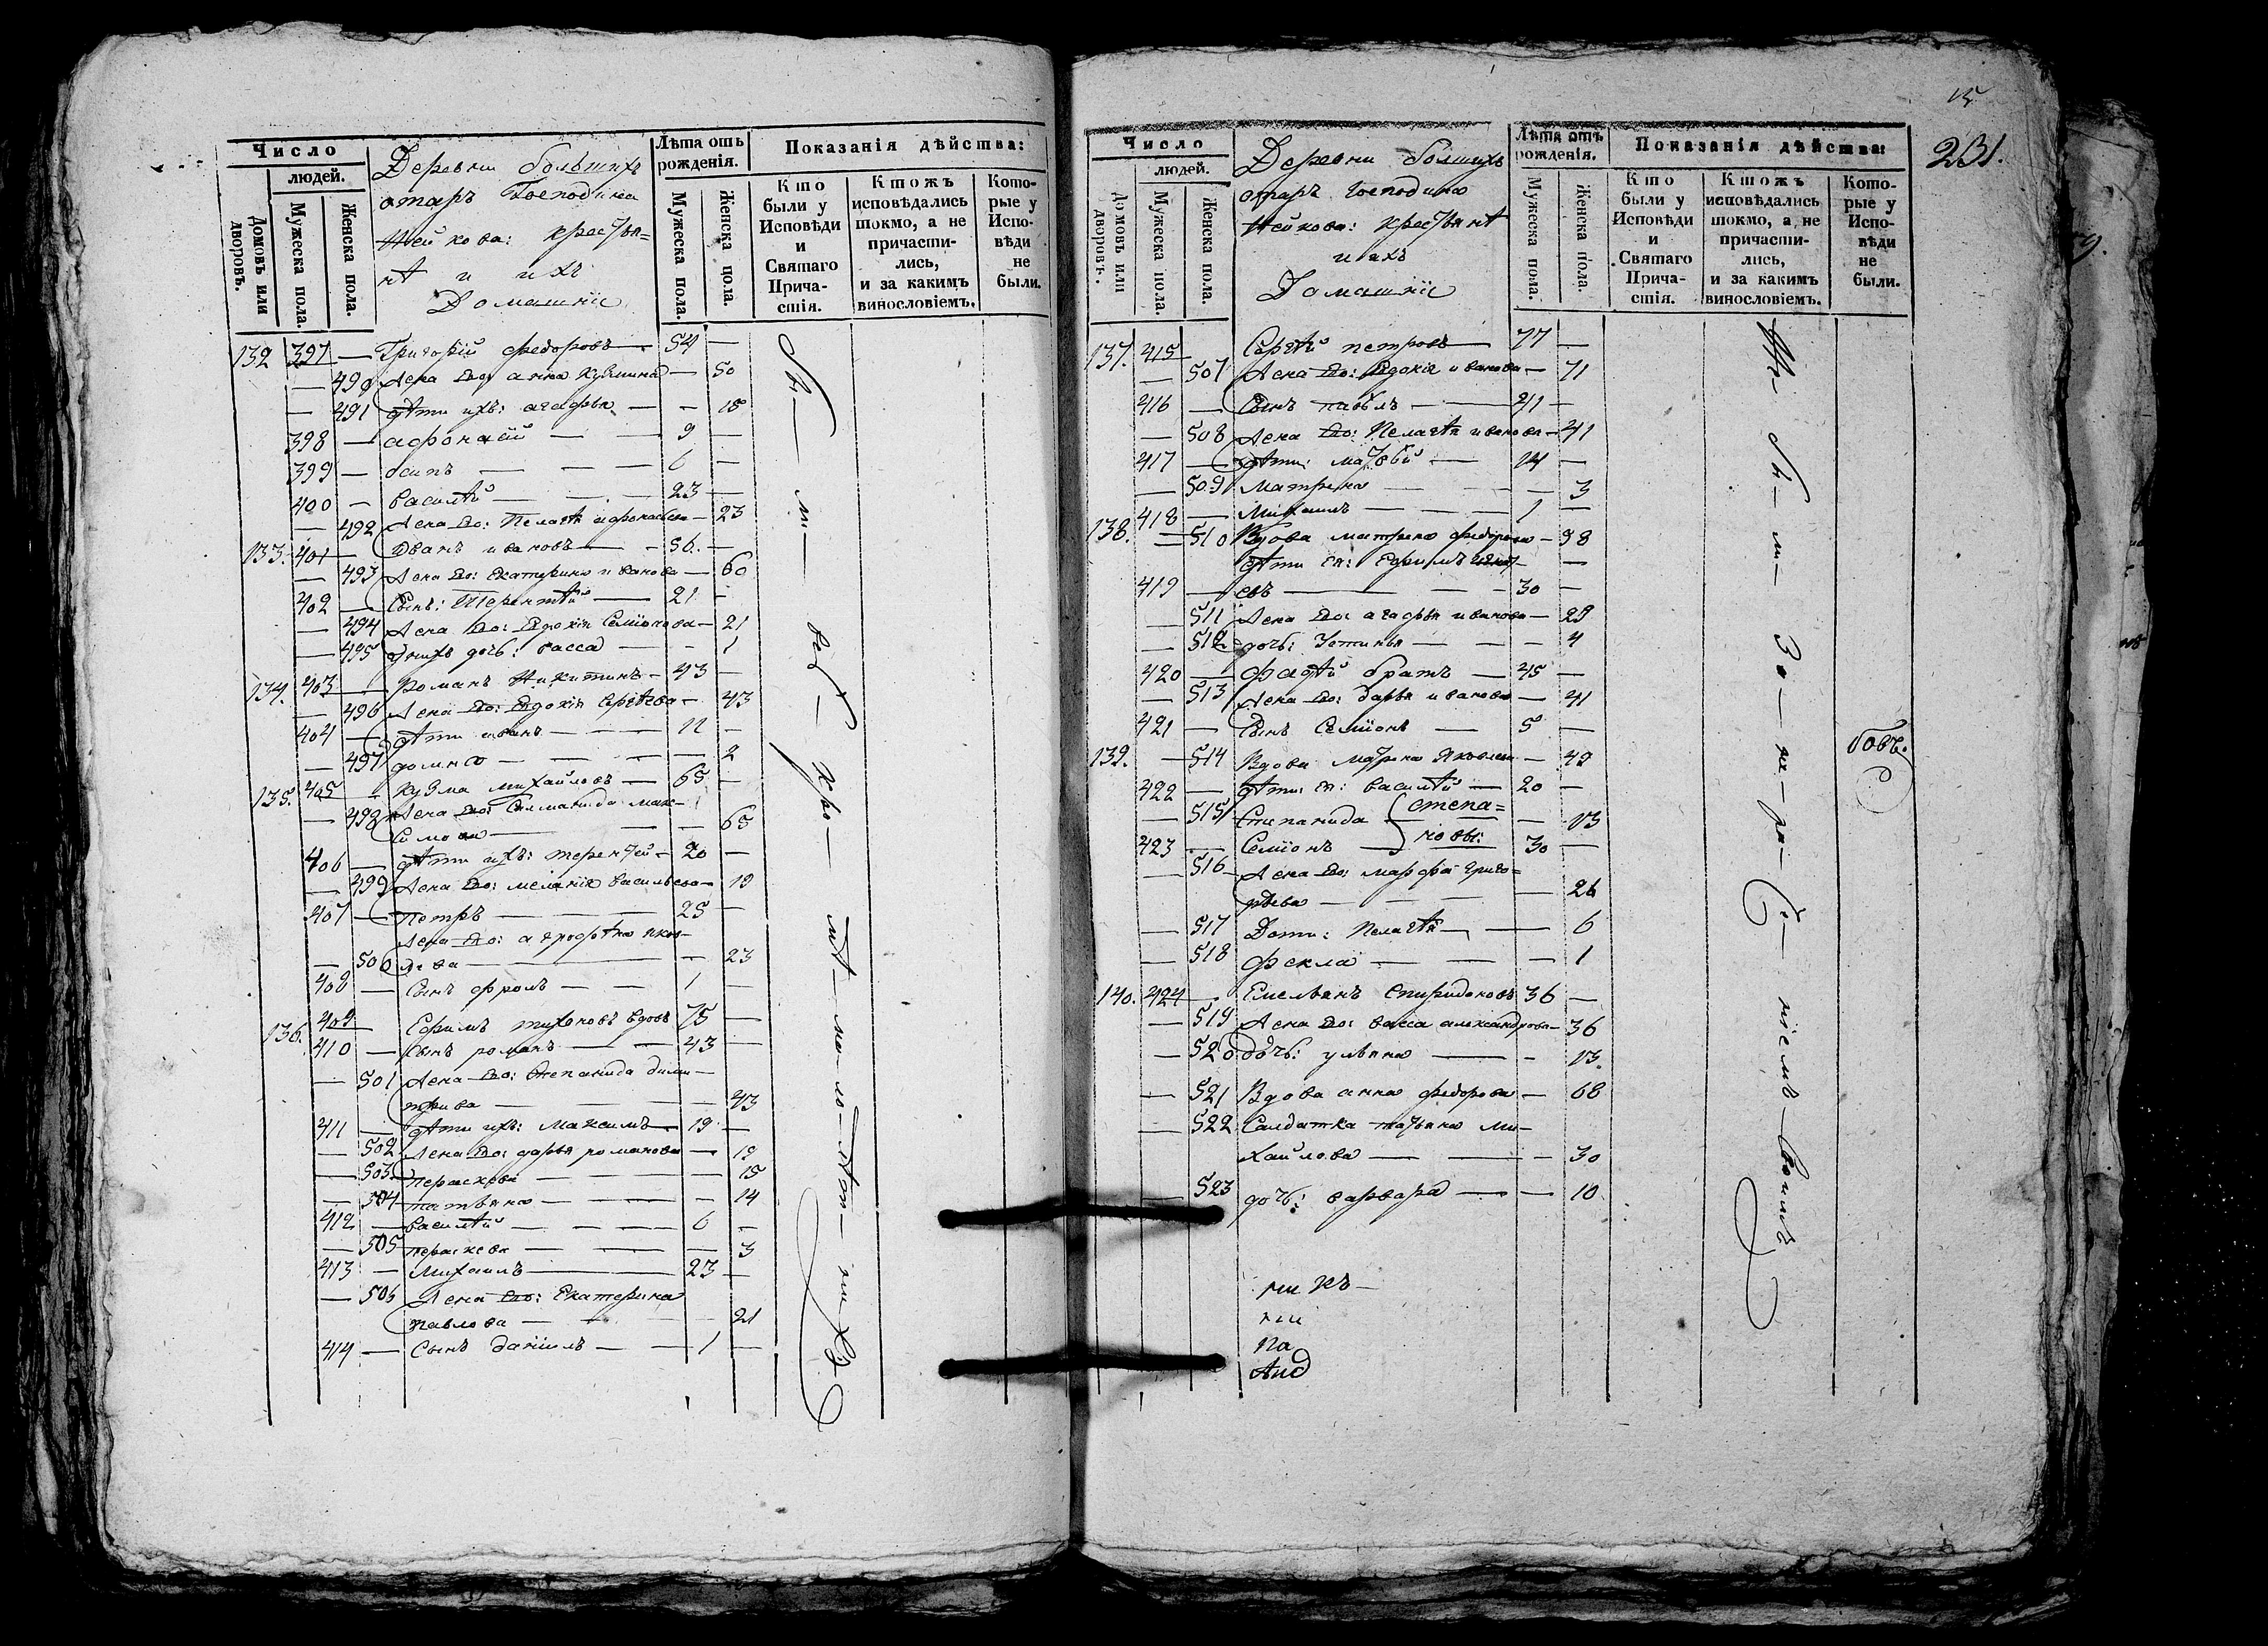 Число
людей.
Домовъ или дворовъ.
Мужеска пола.
Женска пола.
Деревни большихъ
отаръ Господина
крестья=
нѣ и ихъ
Домашніе
Лѣта отъ рожденія.
Мужеска пола.
Женска пола.
Показанія дѣйства:
Кто были у Исповѣди и Святаго Причастія.
Ктожъ исповѣдались токмо, а не причастились, и за какимъ винословіемъ.
Которые у Исповѣди не были.
132 397 — Григорій федоровъ — 54 —
— 490 жена его анна кузмина — 50
— 491 дѣти ихъ: агафья — — 18
398 — афонасій — — 9 —
399 — осипъ — — — 6 —
400 — василѣй — — — 23 —
— 492 жена его: Пелагѣя афонасьева — 23
133. 401 — Иванъ ивановъ — 56. —
— 493 жена его: Екатерина иванова — 60
402 — Сынъ: Терентѣй — 21 —
— 494 жена его: Евдокія Семіонова — 21
— 495 у нихъ дочь: васса — — 1
134. 403 — Романъ Никитинъ — 43 —
— 496 жена его: Евдокія Сергѣева — 43
404 — дѣти иванъ — — — 11 —
— 497 домна — — — — 2
135. 405 — Кузма михайловъ — 65 —
— 498 жена его: Соломанида мак-
симова — — — 65
406 — дѣти ихъ: терентей — 20 —
— 499 жена его: меланія васильева — 19
407 — Петръ — — — 25 —
жена его: агрофѣна яков-
— 500 лева — — — 23
408 — Сынъ фролъ — — 1 —
136. 409 Ефимъ тихоновъ вдовъ 75 —
410 — Сынъ романъ — — 43 —
— 501 жена его: Степанида дми-
трива — — — 43
411 — дѣти ихъ: Максимъ — 19 —
— 502 жена его: дарья романова — 19
— 503 перасковя — — — 15
— 504 татьяна — — — 14
412 — василѣй — — — 6 —
— 505 перасковя — — — 3
413 — Михаилъ — 23 —
— 506 жена его: Екатерина
павлова — — — 21
414 — Сынъ даніилъ — — 1 —
15
231.
Число
людей.
Домовъ или дворовъ.
Мужеска пола.
Женска пола.
Деревни болшихъ
отаръ господина
крестьянѣ
и ихъ
Домашніе
Лѣта отъ рожденія.
Мужеска пола.
Женска пола.
Показанія дѣйства:
Кто были у Исповѣди и Святаго Причастія.
Ктожъ исповѣдались токмо, а не причастились, и за какимъ винословіемъ.
Которые у Исповѣди не были.
137. 415 Сергѣй петровъ — 77 —
— 507 жена его: Евдокія иванова — 71
416 — Сынъ павелъ — — 41 —
— 508 жена его: Пелагѣя иванова — 41
417 — дѣти: матвей — 14 —
— 509 Матрена — — — 3
418 — Михаилъ — — — 1 —
138. — 510 Вдова матрена федорова — 98
дѣти ея: Ефимъ —
419 — евъ — — — 30 —
— 511 жена его: агафья иванова — 29
— 512 дочь: Устинья — — — 4
420 — фадѣй братъ — 45 —
— 513 жена его: дарья иванова — 41
421 — Сынъ Семіонъ — 5 —
139. — 514 Вдова марина яковлева — 49
422 — дѣти ея: василѣй — 20 —
— 515 Степанида — — 13
423 — Семіонъ — 30 —
степа=
новы:
— 516 жена его: марфа григо=
рьева — — — 26
— 517 Дочи: Пелагѣя — — 6
— 518 фекла — — — 1
140. 424 — Емельянъ Спиридоновъ 36 —
— 519 жена его: васса александрова — 36
— 520 дочь: ульяна — — 13.
— 521 Вдова анна федорова — 68
— 522 Салдатка татьяна ми-
хайлова — — 30
— 523 дочь: варвара — — 10